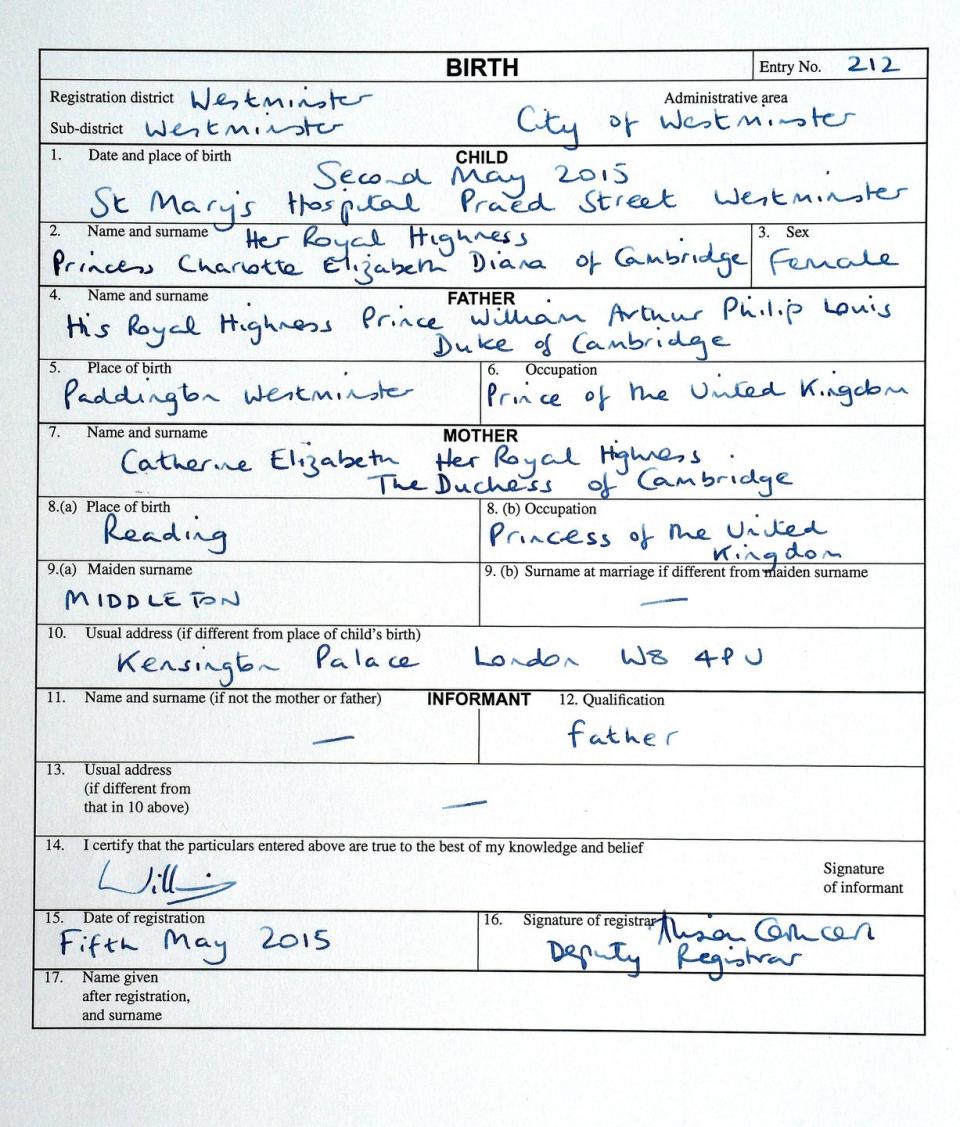 BIRTH
Entry No. 212
Registration district Westminster
Administrative area
Sub-district Westminster
City of Westminster
1. Date and place of birth
CHILD
Second May 2015
St Mary's Hospital Praed Street Westminster
2. Name and surname
Her Royal Highness
Princess Charlotte Elizabeth Diana of Cambridge
3. Sex
Female
4. Name and surname
FATHER
His Royal Highness Prince William Arthur Philip Louis
Duke of Cambridge
5. Place of birth
Paddington Westminster
6. Occupation
Prince of the United Kingdom
7. Name and surname
MOTHER
Catherine Elizabeth Her Royal Highness
The Duchess of Cambridge
8.(a) Place of birth
Reading
8. (b) Occupation
Princess of the United
Kingdom
9.(a) Maiden surname
MIDDLETON
9. (b) Surname at marriage if different from maiden surname
—
10. Usual address (if different from place of child's birth)
Kensington Palace London W8 4PU
11. Name and surname (if not the mother or father)
—
INFORMANT
12. Qualification
Father
13. Usual address
(if different from
that in 10 above)
—
14. I certify that the particulars entered above are true to the best of my knowledge and belief
Signature
of informant
15. Date of registration
Fifth May 2015
16. Signature of registrar
Deputy Registrar
17. Name given
after registration,
and surname